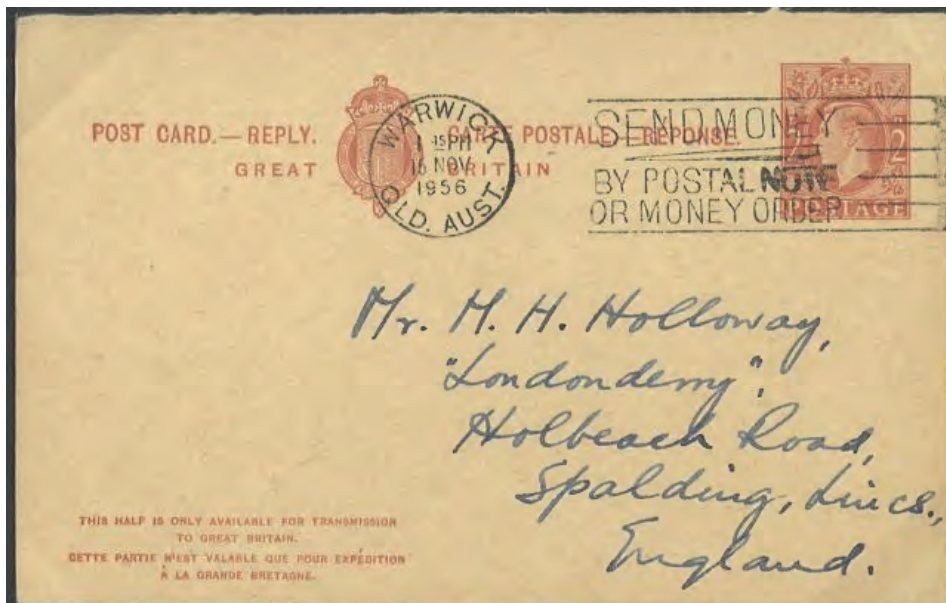 POST CARD.—REPLY. CARTE POSTALE—RÉPONSE.
GREAT BRITAIN
WARWICK
1 45 PM
15 NOV
1956
QLD. AUST.
SEND MONEY
BY POSTAL NOTE
OR MONEY ORDER
2
POSTAGE
Mr. M. H. Holloway,
"Londonderry",
Holbeach Road,
Spalding, Lincs.,
England.
THIS HALF IS ONLY AVAILABLE FOR TRANSMISSION
TO GREAT BRITAIN.
CETTE PARTIE N'EST VALABLE QUE POUR EXPÉDITION
À LA GRANDE BRETAGNE.